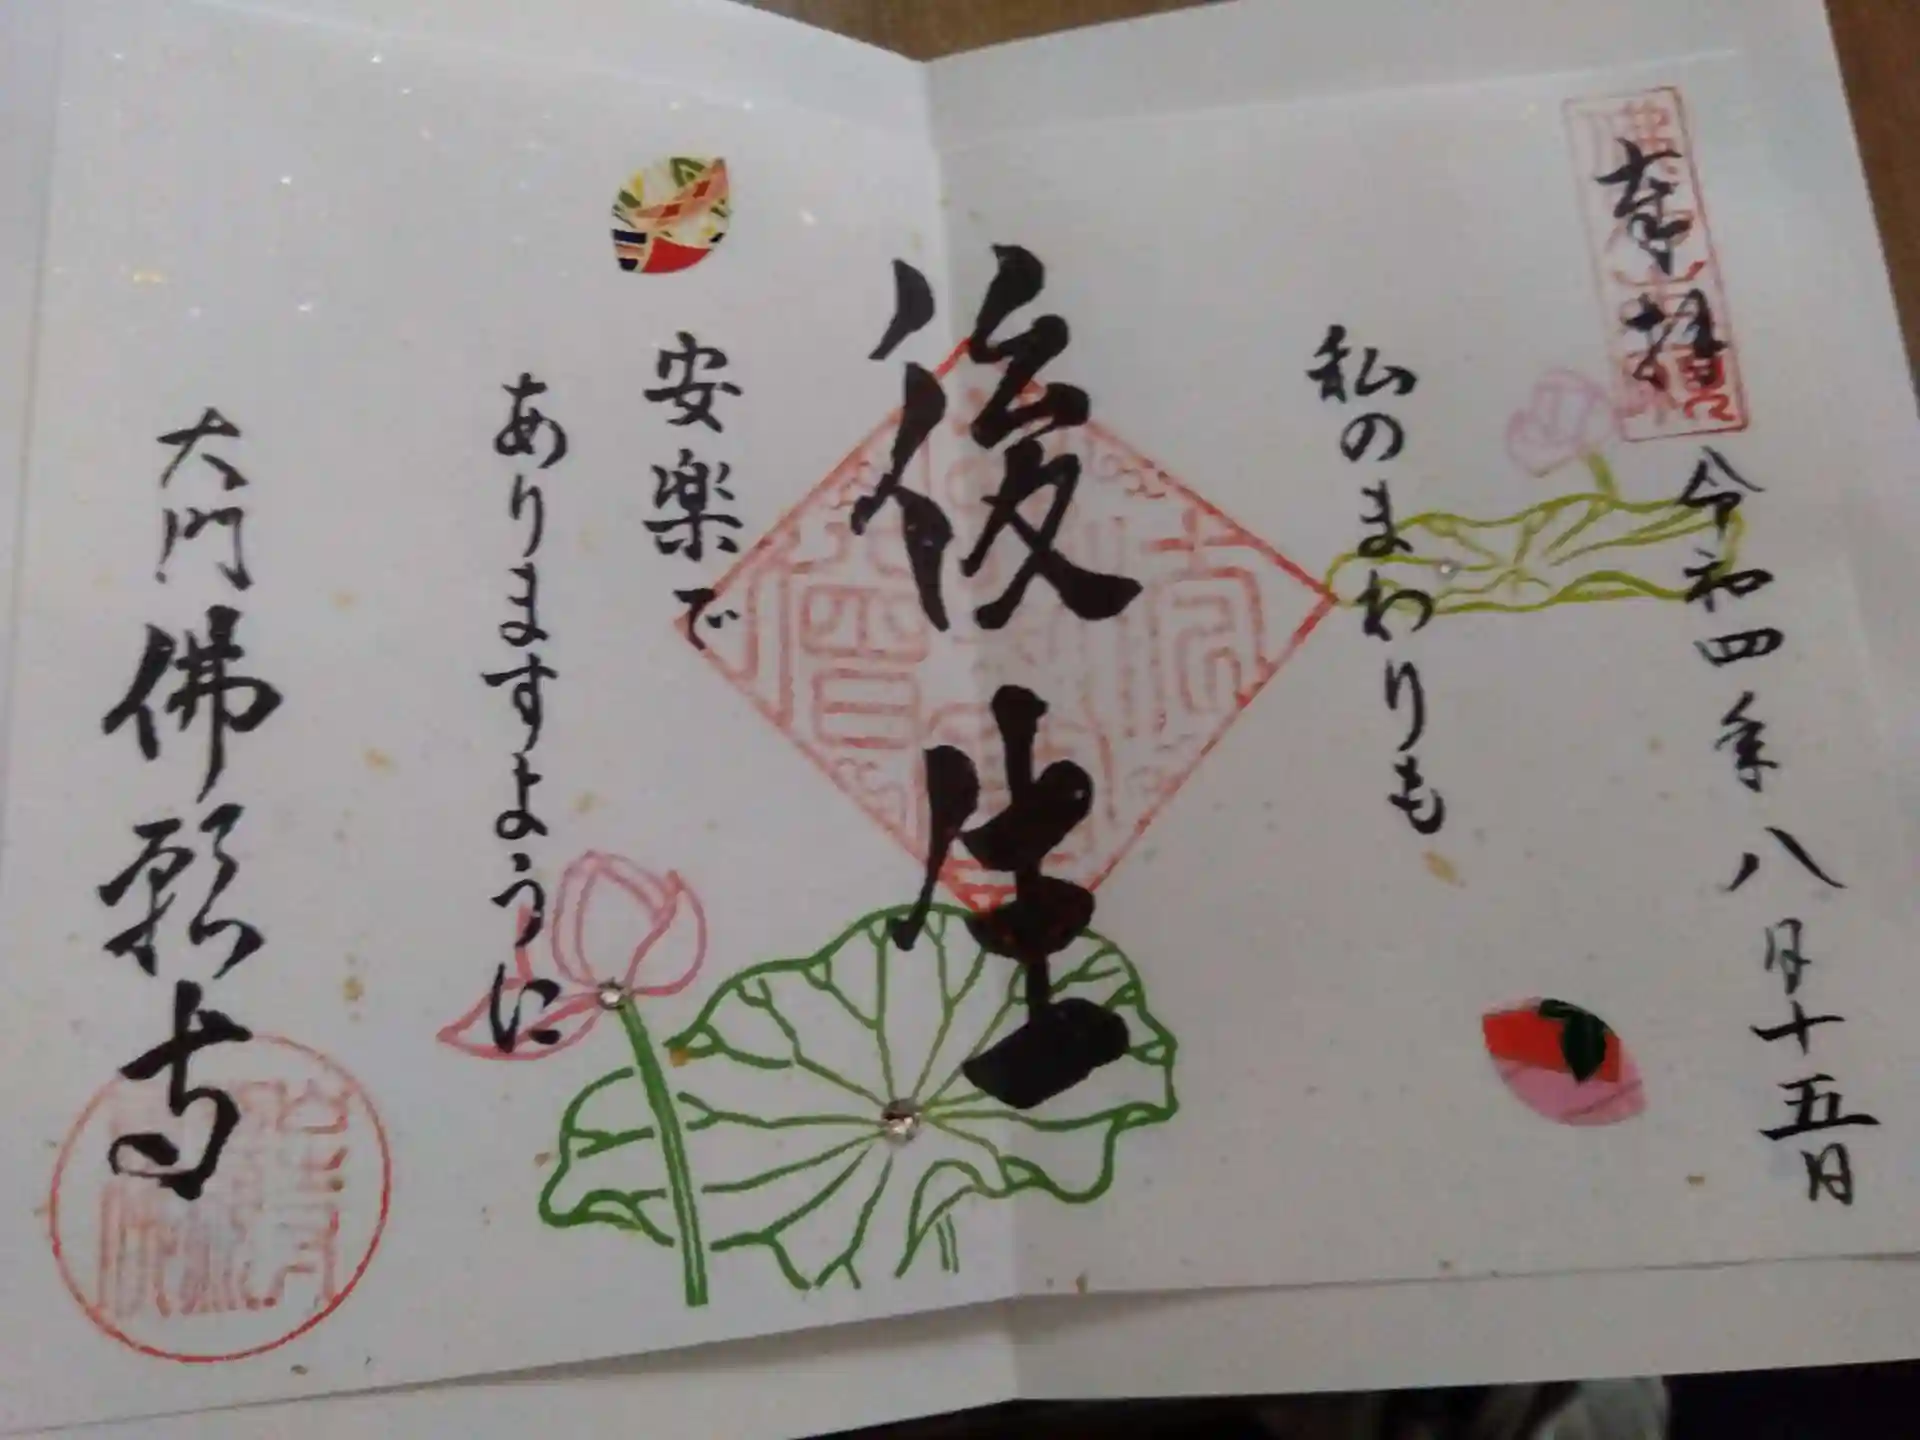 奉拝
令和四年八月十五日
私のまわりも
後生
安楽で
ありますように
大門 佛願寺